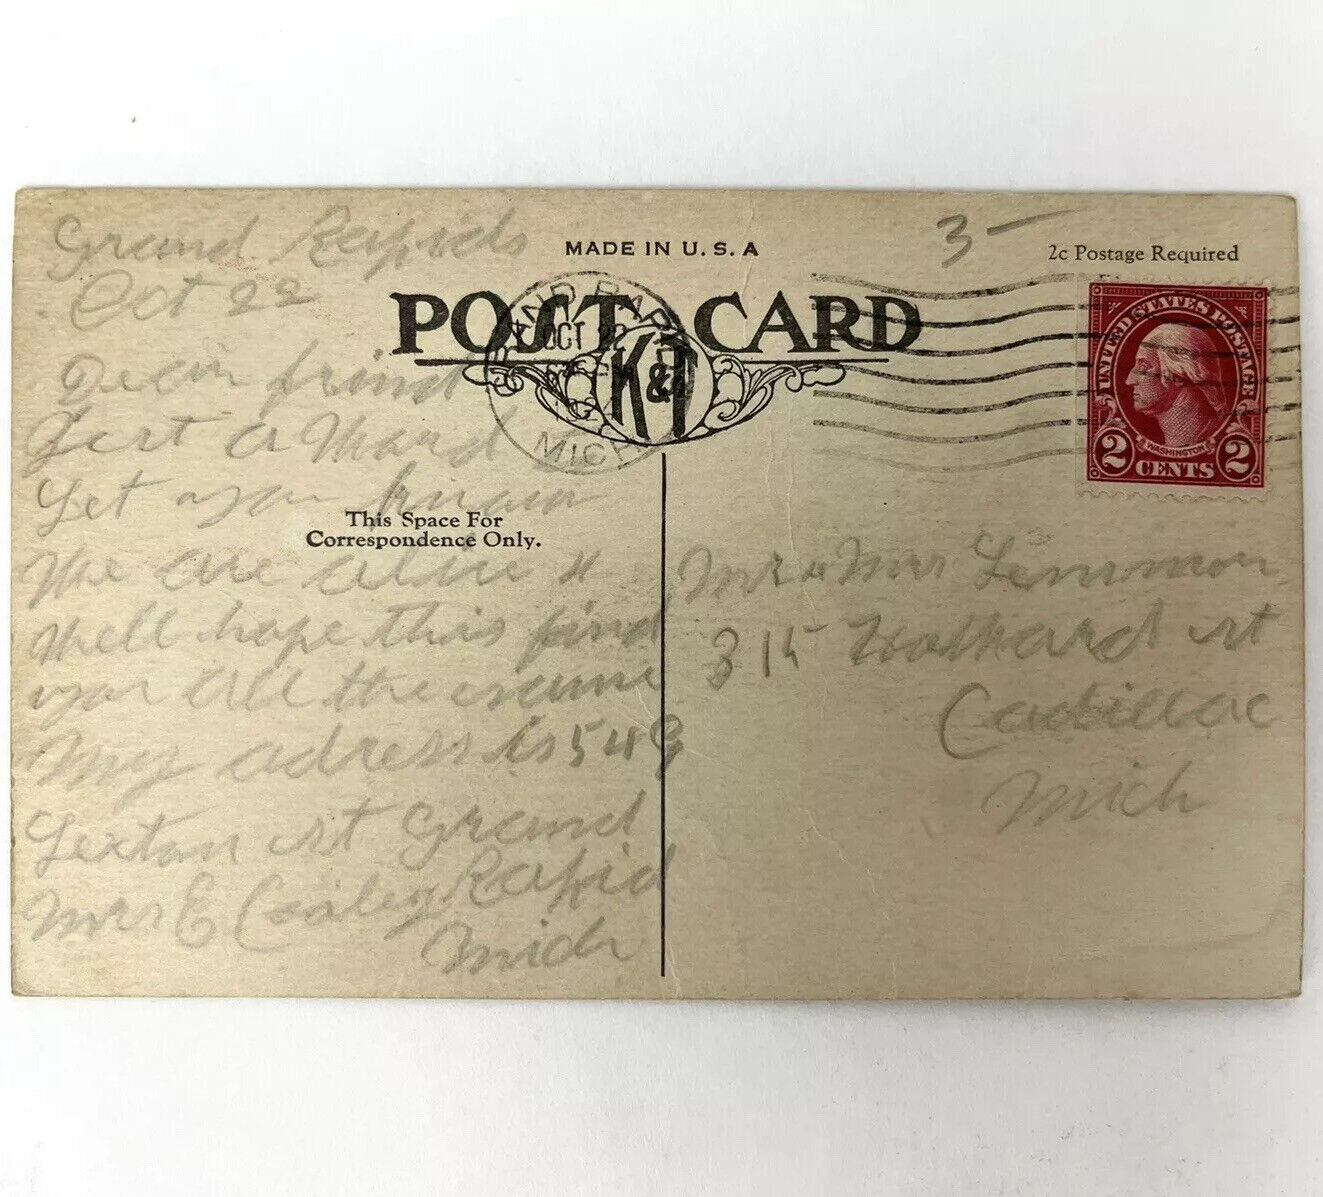 Grand Rapids
Oct 22
Dear frind
Jest a Word
Let you know
We are alive &
Well hope this find
you all the same
My adress is 548
Sexton st Grand
Rapid
Mrs E Cooley
Mich
MADE IN U.S.A
POST CARD
K&T
GRAND RAPIDS
OCT 22
MICH
This Space For
Correspondence Only.
3-
2c Postage Required
UNITED STATES POSTAGE
WASHINGTON
2 CENTS 2
Mr & Mrs Lemmon
315 st
Cadillac
Mich